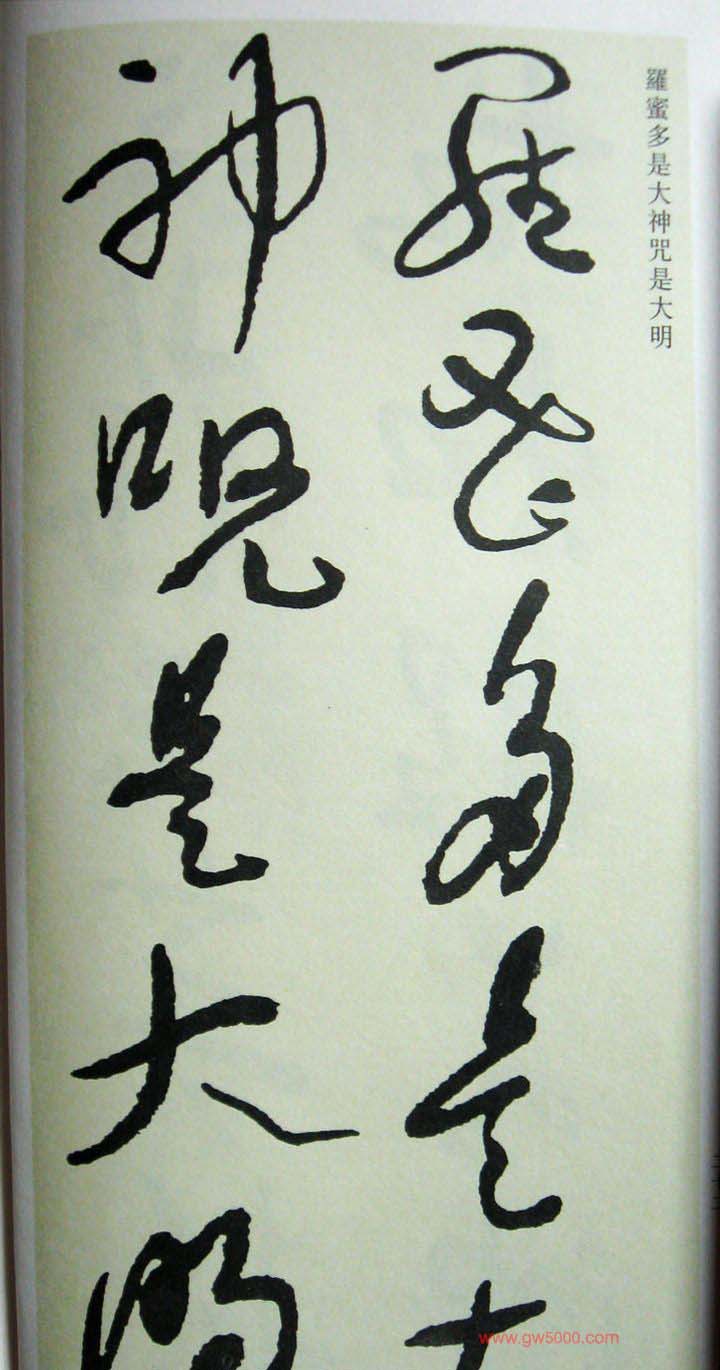 羅蜜多是大神咒是大明
羅蜜多是大
神咒是大明
www.gw5000.com